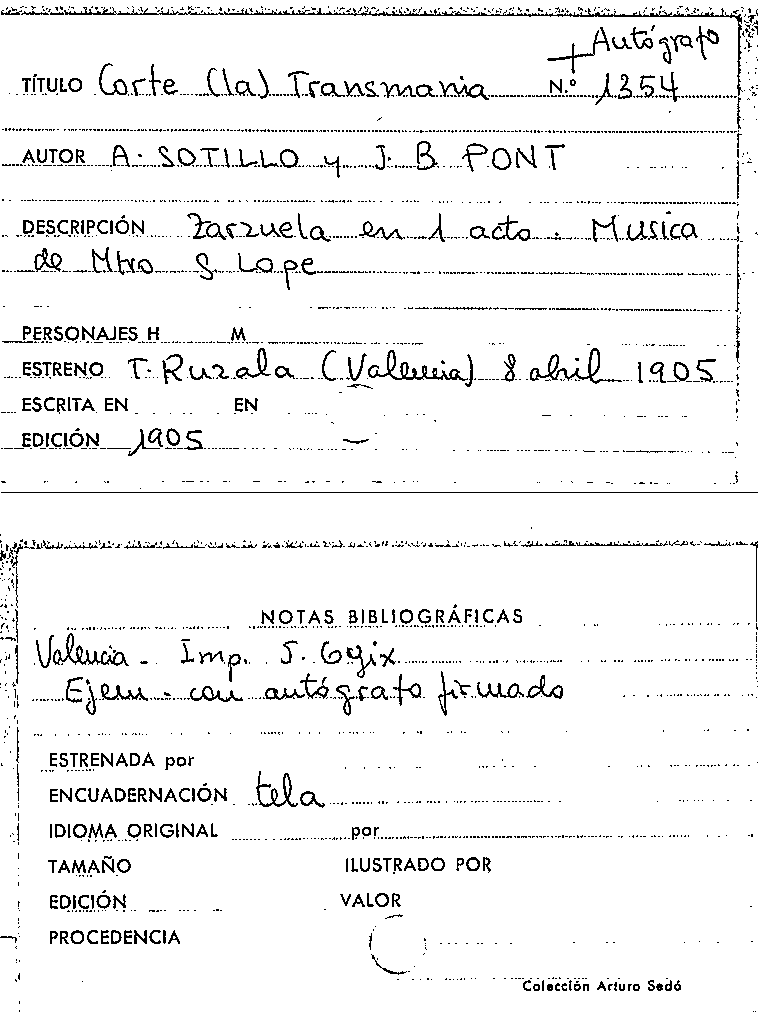 + Autógrafo
TÍTULO Corte (la) Transmania N.º 1354
AUTOR A. SOTILLO y J. B PONT
DESCRIPCIÓN Zarzuela en 1 acto. Musica
de Mtro S. Lope
PERSONAJES H M
ESTRENO T. Ruzala (Valencia) 8 abril 1905
ESCRITA EN EN
EDICIÓN 1905 —
NOTAS BIBLIOGRÁFICAS
Valencia - Imp. J.
Ejem - con autógrafo firmado
ESTRENADA por
ENCUADERNACIÓN tela
IDIOMA ORIGINAL por
TAMAÑO ILUSTRADO POR
EDICIÓN VALOR
PROCEDENCIA
Colección Arturo Sedó